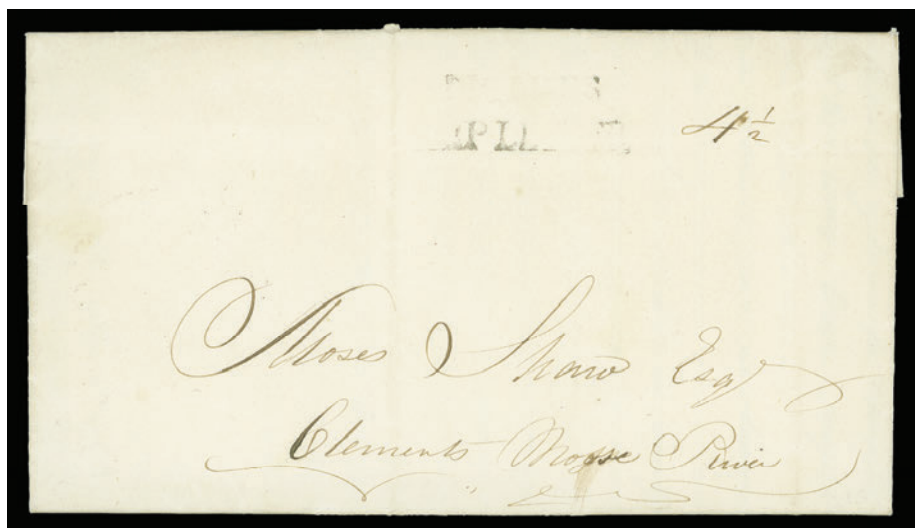 4 1/2
Moses Shaw Esqr
Clements Moose River